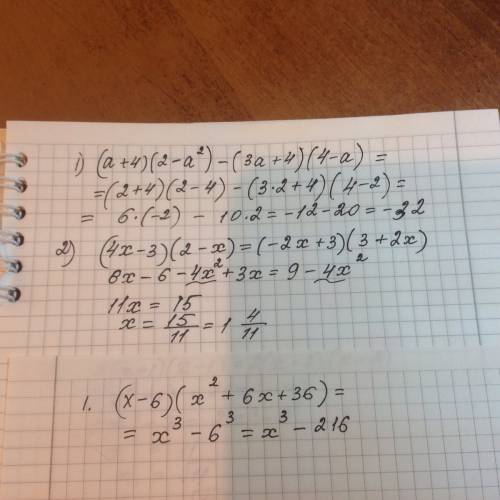 1) (a+4)(2-a²)-(3a+4)(4-a)=
=(2+4)(2-4)-(3·2+4)(4-2)=
= 6·(-2) - 10·2=-12-20=-32
2) (4x-3)(2-x)=(-2x+3)(3+2x)
8x-6-4x²+3x=9-4x²
11x=15
x=15/11=1 4/11
1. (x-6)(x²+6x+36)=
= x³-6³=x³-216